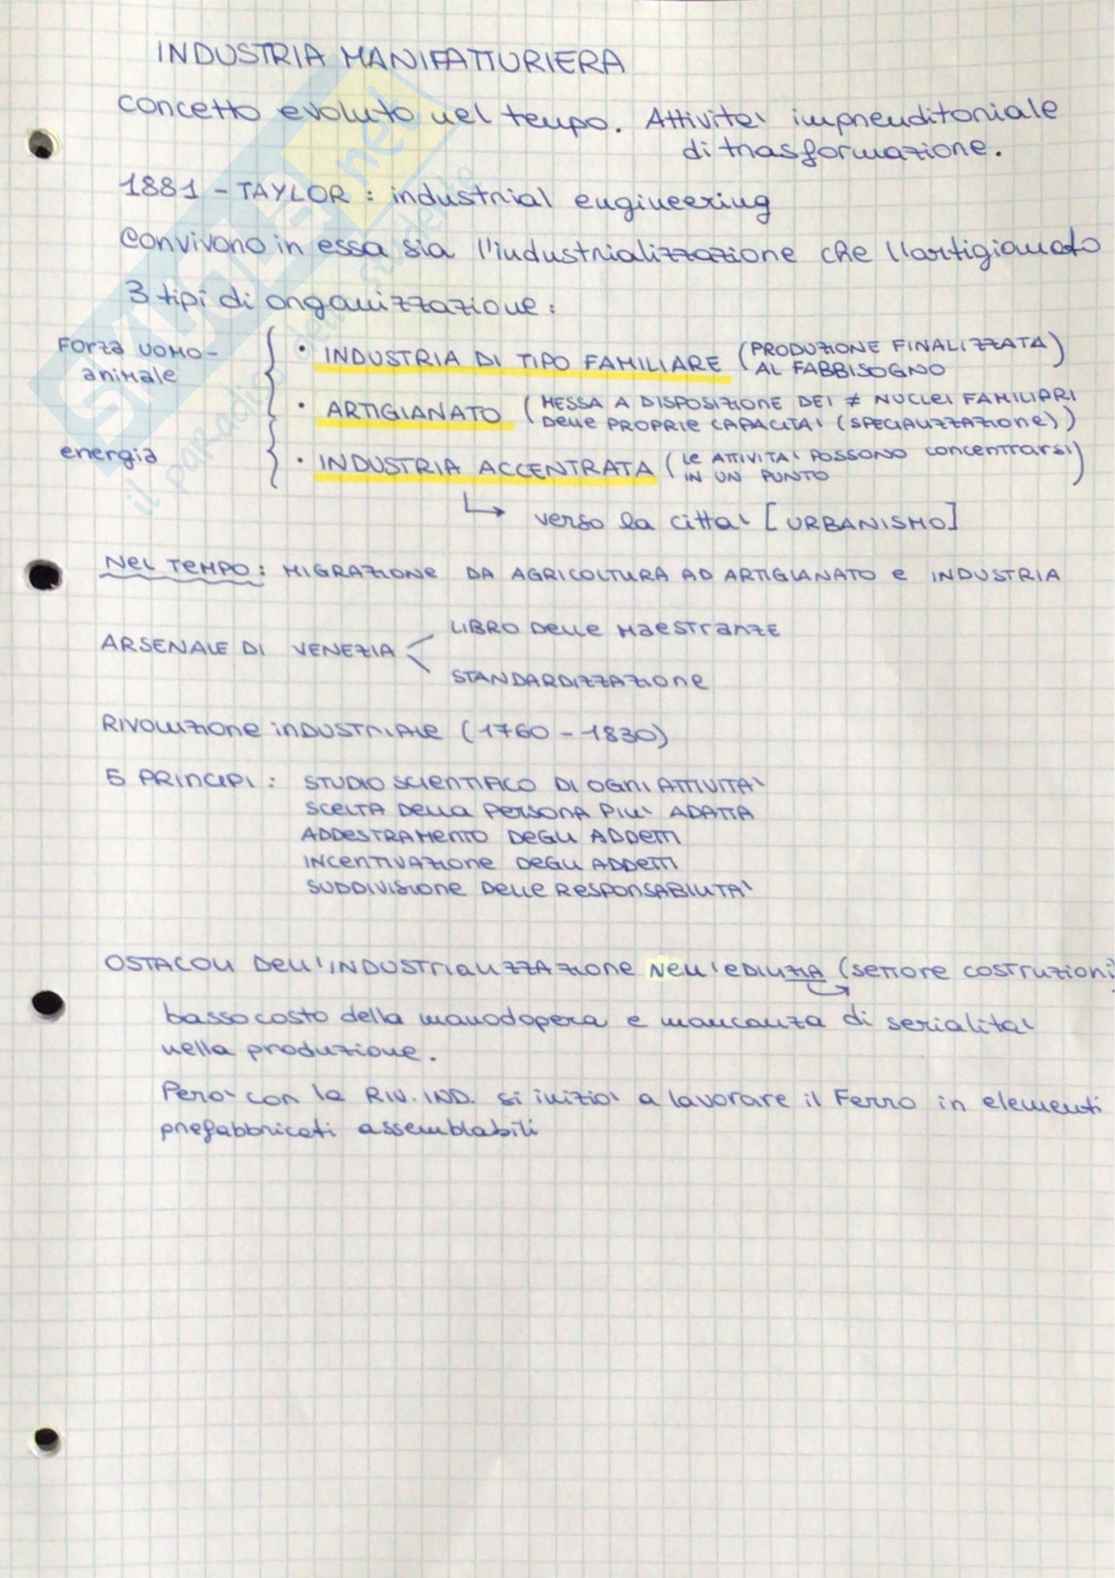 INDUSTRIA MANIFATTURIERA
concetto evoluto nel tempo. Attivita' imprenditoriale
di trasformazione.
1881 - TAYLOR : industrial engineering
convivono in essa sia l'industrializzazione che l'artigianato
3 tipi di organizzazione :
Forza UOMO-
animale
• INDUSTRIA DI TIPO FAMILIARE (PRODUZIONE FINALIZZATA
AL FABBISOGNO)
• ARTIGIANATO (MESSA A DISPOSIZIONE DEI ≠ NUCLEI FAMILIARI
DELLE PROPRIE CAPACITA' (SPECIALIZZAZIONE))
energia
• INDUSTRIA ACCENTRATA (LE ATTIVITA' POSSONO concentrarsi
IN UN PUNTO)
↳ verso la citta' [URBANISMO]
NEL TEMPO : MIGRAZIONE DA AGRICOLTURA AD ARTIGIANATO e INDUSTRIA
ARSENALE DI VENEZIA < LIBRO DELLE MAESTRANZE
STANDARDIZZAZIONE
RIVOLUZIONE INDUSTRIALE (1760 - 1830)
5 PRINCIPI : STUDIO SCIENTIFICO DI OGNI ATTIVITA'
SCELTA DELLA PERSONA PIU' ADATTA
ADDESTRAMENTO DEGLI ADDETTI
INCENTIVAZIONE DEGLI ADDETTI
SUDDIVISIONE DELLE RESPONSABILITA'
OSTACOLI DELL'INDUSTRIALIZZAZIONE NELL'EDILIZIA (settore costruzioni)
basso costo della manodopera e mancanza di serialita'
nella produzione.
Pero' con la RIV. IND. si inizio' a lavorare il Ferro in elementi
prefabbricati assemblabili
SKUOLA.net
il paradiso dello studente